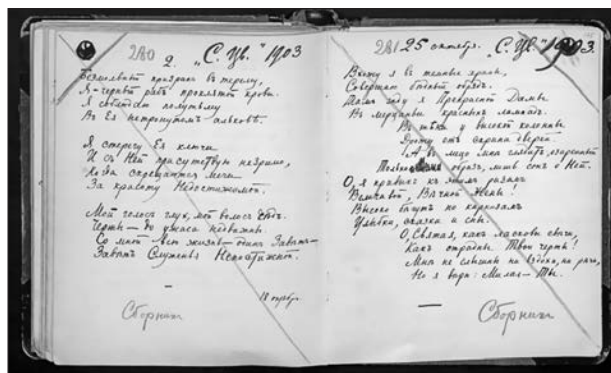 280
2. „С. Цв." 1903
Безмолвный призракъ въ терему,
Я – черный рабъ проклятой крови.
Я соблюдаю полутьму
Въ Ея нетронутомъ альковѣ.
Я стерегу Ея ключи
И съ Ней присутствую незримо,
Когда скрещаются мечи
За красоту Недостижимой.
Мой голосъ глухъ, мой волосъ сѣдъ.
Черты – до ужаса недвижны.
Со мной всю жизнь – одинъ Завѣтъ –
Завѣтъ Служенья Непостижной.
18 октября
Сборник
281
25 октября. „С. Цв." 1903.
Вхожу я въ темные храмы,
Совершаю бѣдный обрядъ.
Тамъ жду я Прекрасной Дамы
Въ мерцаньи красныхъ лампадъ.
Въ тѣни у высокой колонны
Дрожу отъ скрипа дверей.
А въ лицо мнѣ глядитъ, озаренный,
Только образъ, лишь сонъ о Ней.
О, я привыкъ къ этимъ ризамъ
Величавой, Вѣчной Жены!
Высоко бѣгутъ по карнизамъ
Улыбки, сказки и сны.
О, Святая, какъ ласковы свѣчи,
Какъ отрадны Твои черты!
Мнѣ не слышны ни вздохи, ни рѣчи,
Но я вѣрю: Милая – Ты.
Сборник